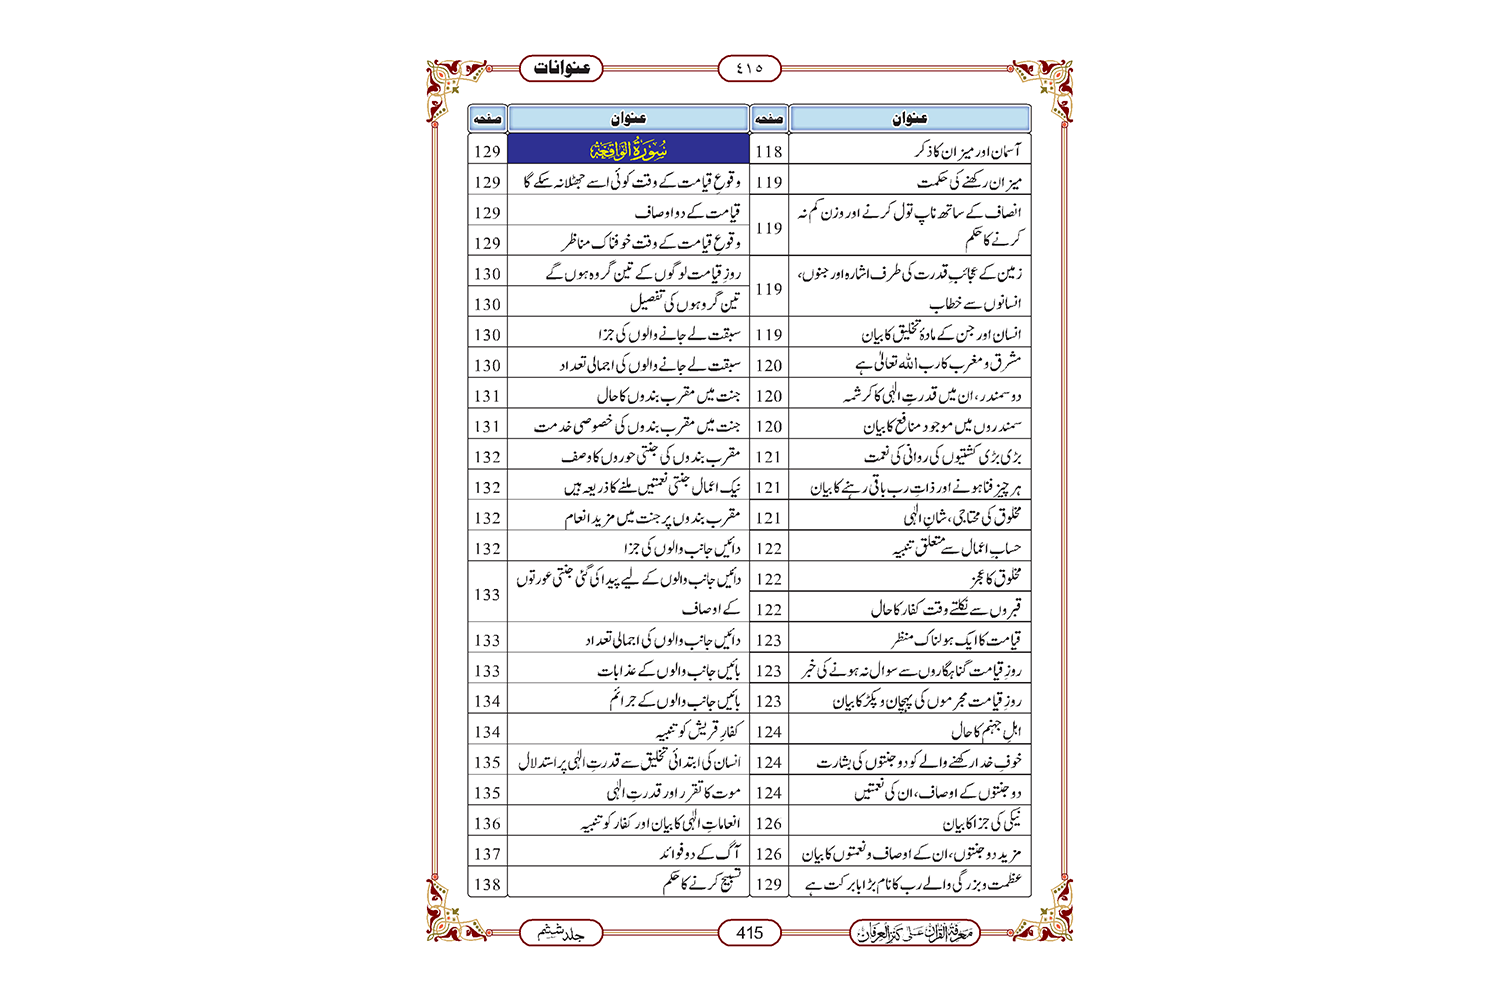 عنوانات
٤١٥
عنوان صفحہ
آسمان اور میزان کا ذکر 118
میزان رکھنے کی حکمت 119
انصاف کے ساتھ ناپ تول کرنے اور وزن کم نہ
کرنے کا حکم 119
زمین کے عجائبِ قدرت کی طرف اشارہ اور جنوں،
انسانوں سے خطاب 119
انسان اور جن کے مادۂ تخلیق کا بیان 119
مشرق و مغرب کا رب اللہ تعالیٰ ہے 120
دو سمندر، ان میں قدرتِ الٰہی کا کرشمہ 120
سمندروں میں موجود منافع کا بیان 120
بڑی بڑی کشتیوں کی روانی کی نعمت 121
ہر چیز فنا ہونے اور ذاتِ رب باقی رہنے کا بیان 121
مخلوق کی محتاجی، شانِ الٰہی 121
حسابِ اعمال سے متعلق تنبیہ 122
مخلوق کا عجز 122
قبروں سے نکلتے وقت کفار کا حال 122
قیامت کا ایک ہولناک منظر 123
روزِ قیامت گناہگاروں سے سوال نہ ہونے کی خبر 123
روزِ قیامت مجرموں کی پہچان و پکڑ کا بیان 123
اہلِ جہنم کا حال 124
خوفِ خدا رکھنے والے کو دو جنتوں کی بشارت 124
دو جنتوں کے اوصاف، ان کی نعمتیں 124
نیکی کی جزا کا بیان 126
مزید دو جنتوں، ان کے اوصاف و نعمتوں کا بیان 126
عظمت و بزرگی والے رب کا نام بڑا بابرکت ہے 129
عنوان صفحہ
سُوْرَۃُ الْوَاقِعَۃ 129
وقوعِ قیامت کے وقت کوئی اسے جھٹلا نہ سکے گا 129
قیامت کے دو اوصاف 129
وقوعِ قیامت کے وقت خوفناک مناظر 129
روزِ قیامت لوگوں کے تین گروہ ہوں گے 130
تین گروہوں کی تفصیل 130
سبقت لے جانے والوں کی جزا 130
سبقت لے جانے والوں کی اجمالی تعداد 130
جنت میں مقرب بندوں کا حال 131
جنت میں مقرب بندوں کی خصوصی خدمت 131
مقرب بندوں کی جنتی حوروں کا وصف 132
نیک اعمال جنتی نعمتیں ملنے کا ذریعہ ہیں 132
مقرب بندوں پر جنت میں مزید انعام 132
دائیں جانب والوں کی جزا 132
دائیں جانب والوں کے لیے پیدا کی گئی جنتی عورتوں
کے اوصاف 133
دائیں جانب والوں کی اجمالی تعداد 133
بائیں جانب والوں کے عذابات 133
بائیں جانب والوں کے جرائم 134
کفارِ قریش کو تنبیہ 134
انسان کی ابتدائی تخلیق سے قدرتِ الٰہی پر استدلال 135
موت کا تقرر اور قدرتِ الٰہی 135
انعاماتِ الٰہی کا بیان اور کفار کو تنبیہ 136
آگ کے دو فوائد 137
تسبیح کرنے کا حکم 138
معرفۃ القرآن علیٰ کنز العرفان
415
جلد ششم